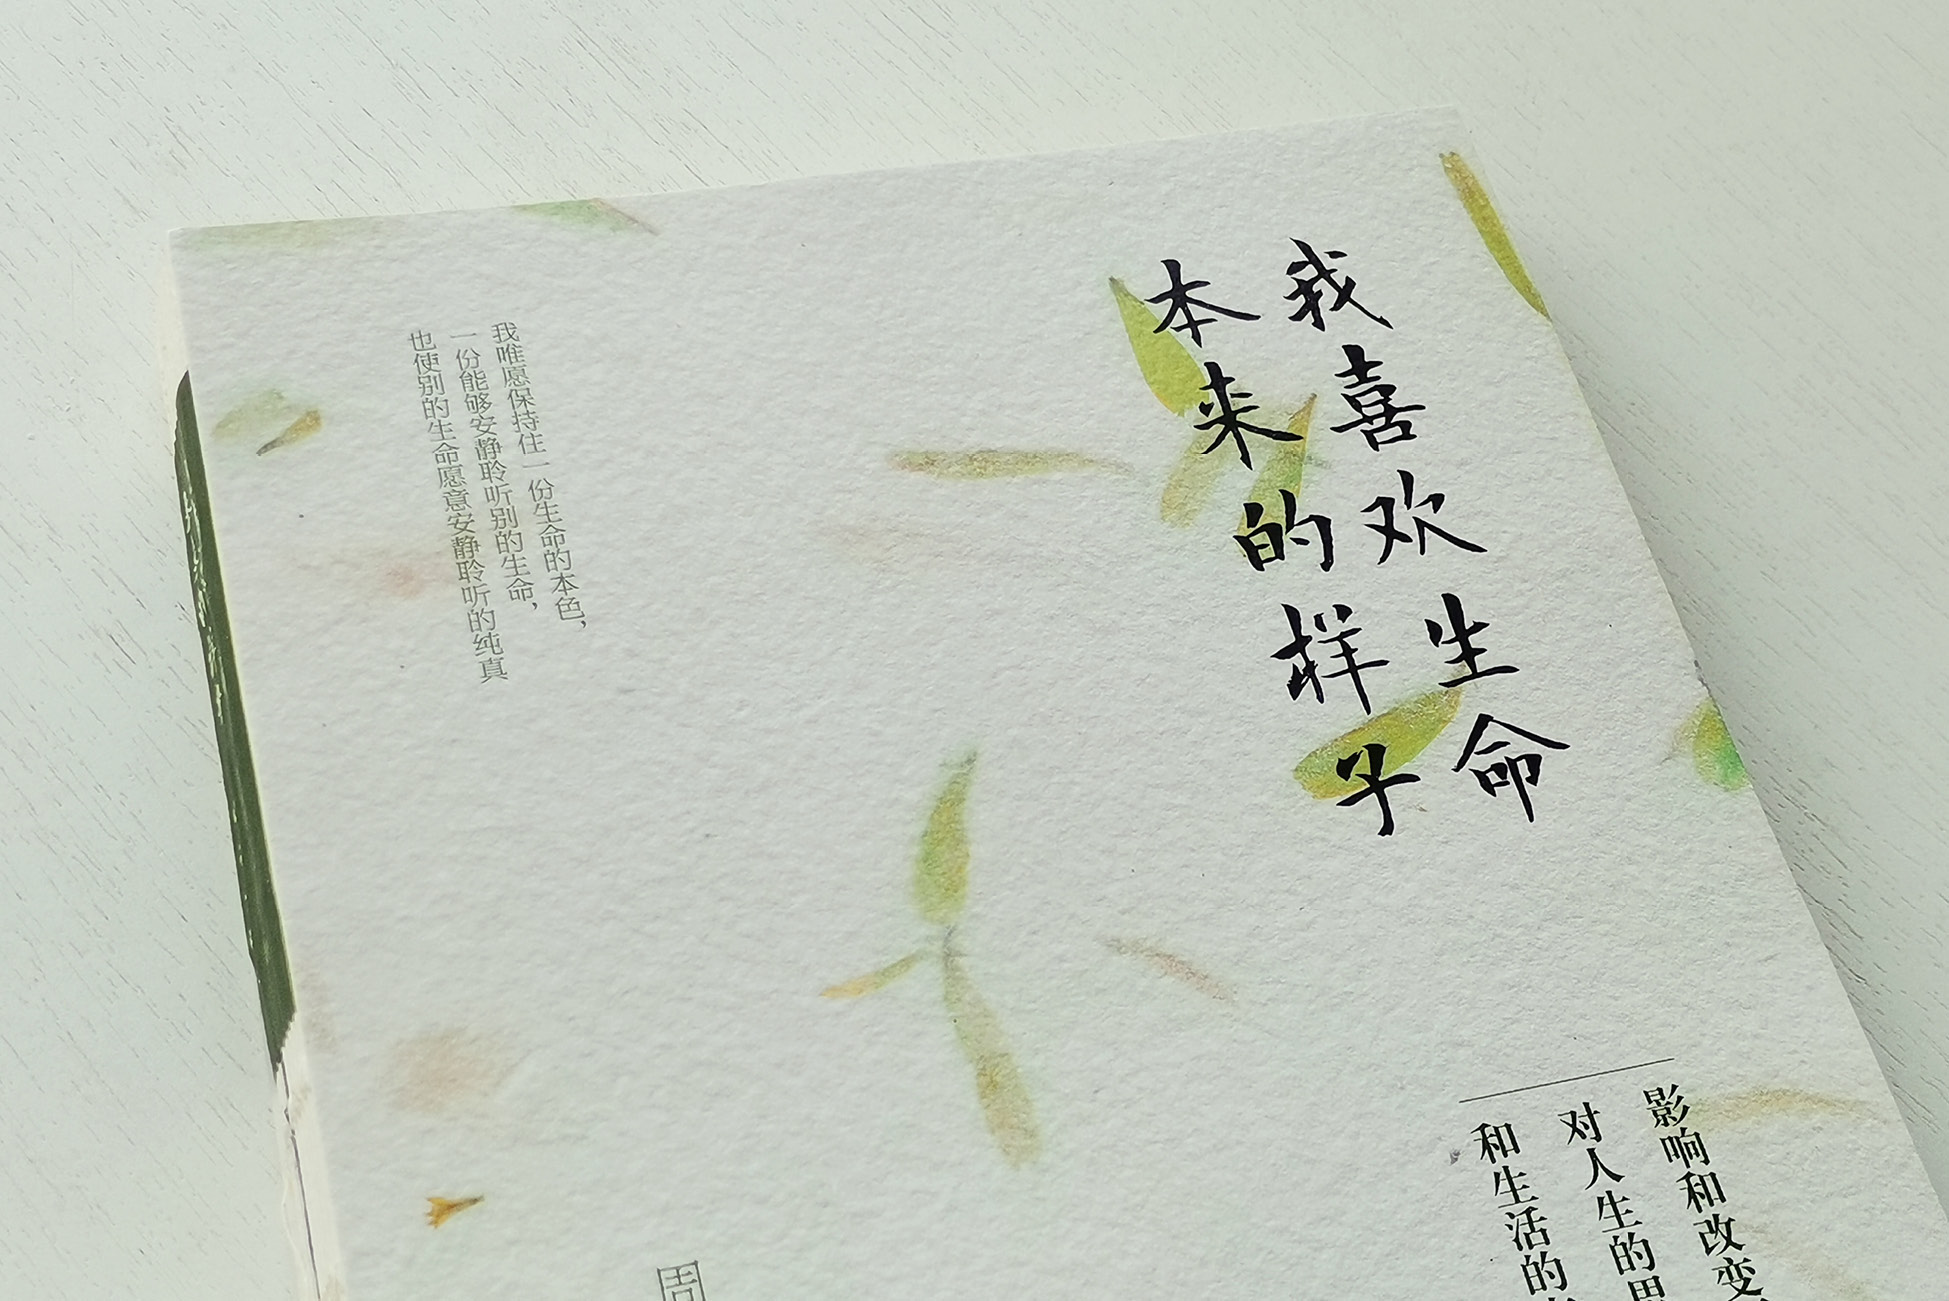 我喜欢生命
本来的样子
我唯愿保持住一份生命的本色，
一份能够安静聆听别的生命，
也使别的生命愿意安静聆听的纯真
影响和改变
对人生的思
和生活的
周